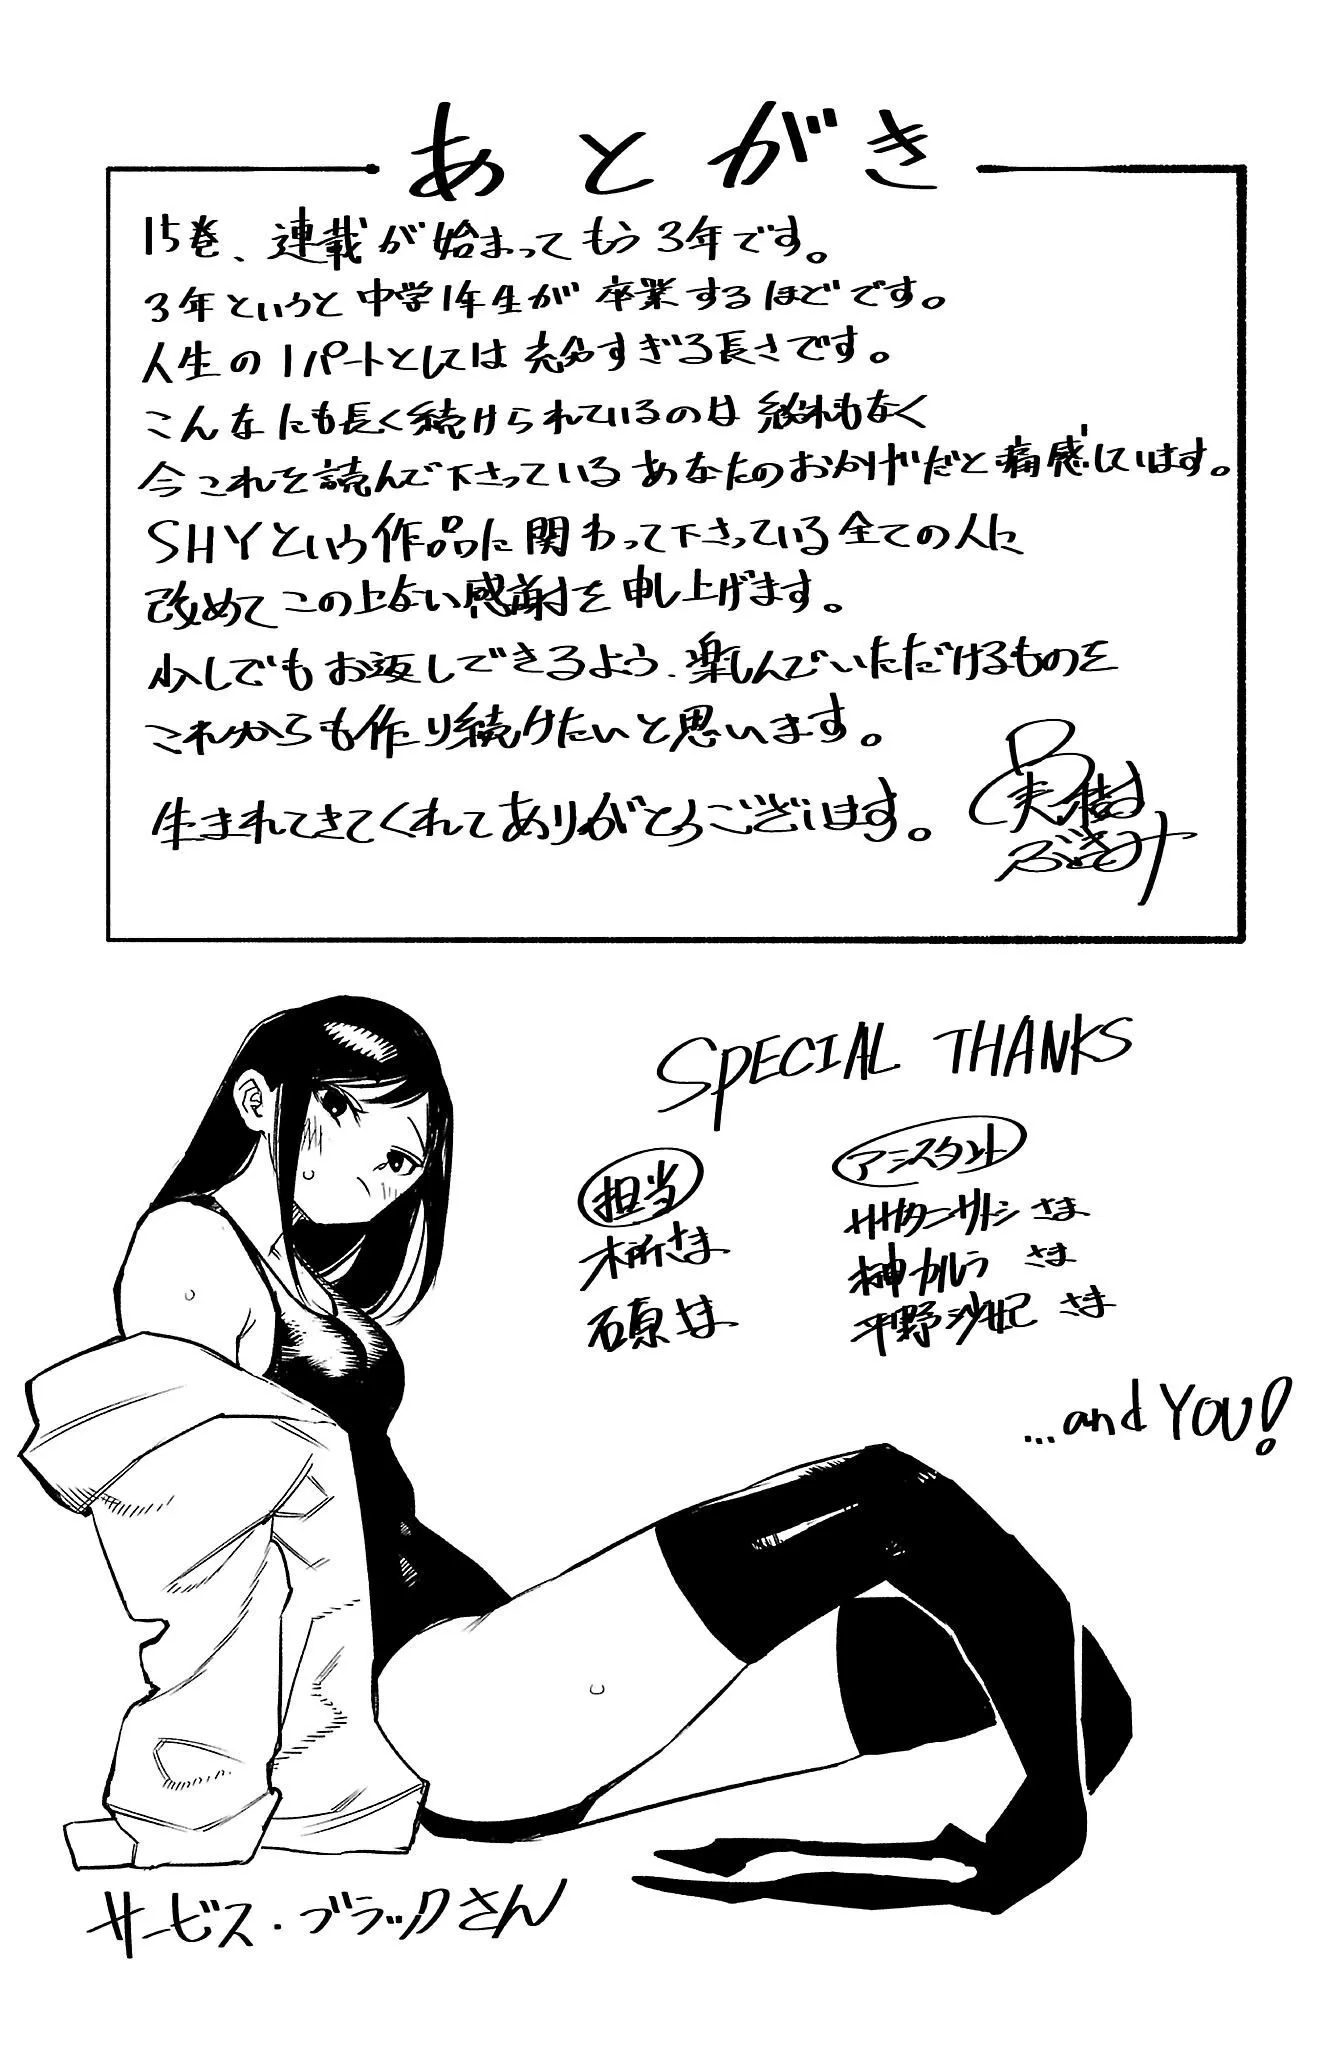 あとがき
15巻、連載が始まってもう3年です。
3年というと中学1年生が卒業するほどです。
人生の1パートとしては充分すぎる長さです。
こんなにも長く続けられているのは紛れもなく
今これを読んで下さっているあなたのおかげだと痛感しています。
SHYという作品に関わって下さっている全ての人に
改めてこの上ない感謝を申し上げます。
少しでもお返しできるよう、楽しんでいただけるものを
これからも作り続けたいと思います。
生まれてきてくれてありがとうございます。
実樹ぶきみ
SPECIAL THANKS
担当
木所さま
石原さま
アシスタント
サタニサトシさま
榊カルラさま
平野沙妃さま
...and YOU!
サービス・ブラックさん